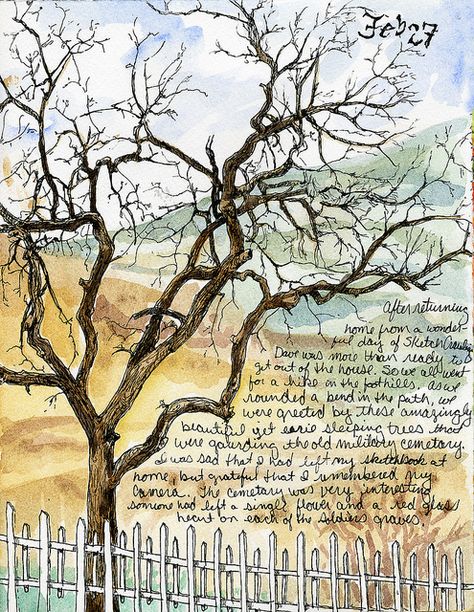 Feb 27
After returning
home from a wonder-
ful day of Sketch Crawling
Dave was more than ready to
get out of the house. So we all went
for a hike in the foothills. As we
rounded a bend in the path, we
were greeted by these amazingly
beautiful yet eerie sleeping trees that
were gaurding the old military cemetary.
I was sad that I had left my sketchbook at
home, but grateful that I remembered my
camera. The cemetary was very interesting
someone had left a single flower and a red glass
heart on each of the soldiers graves.